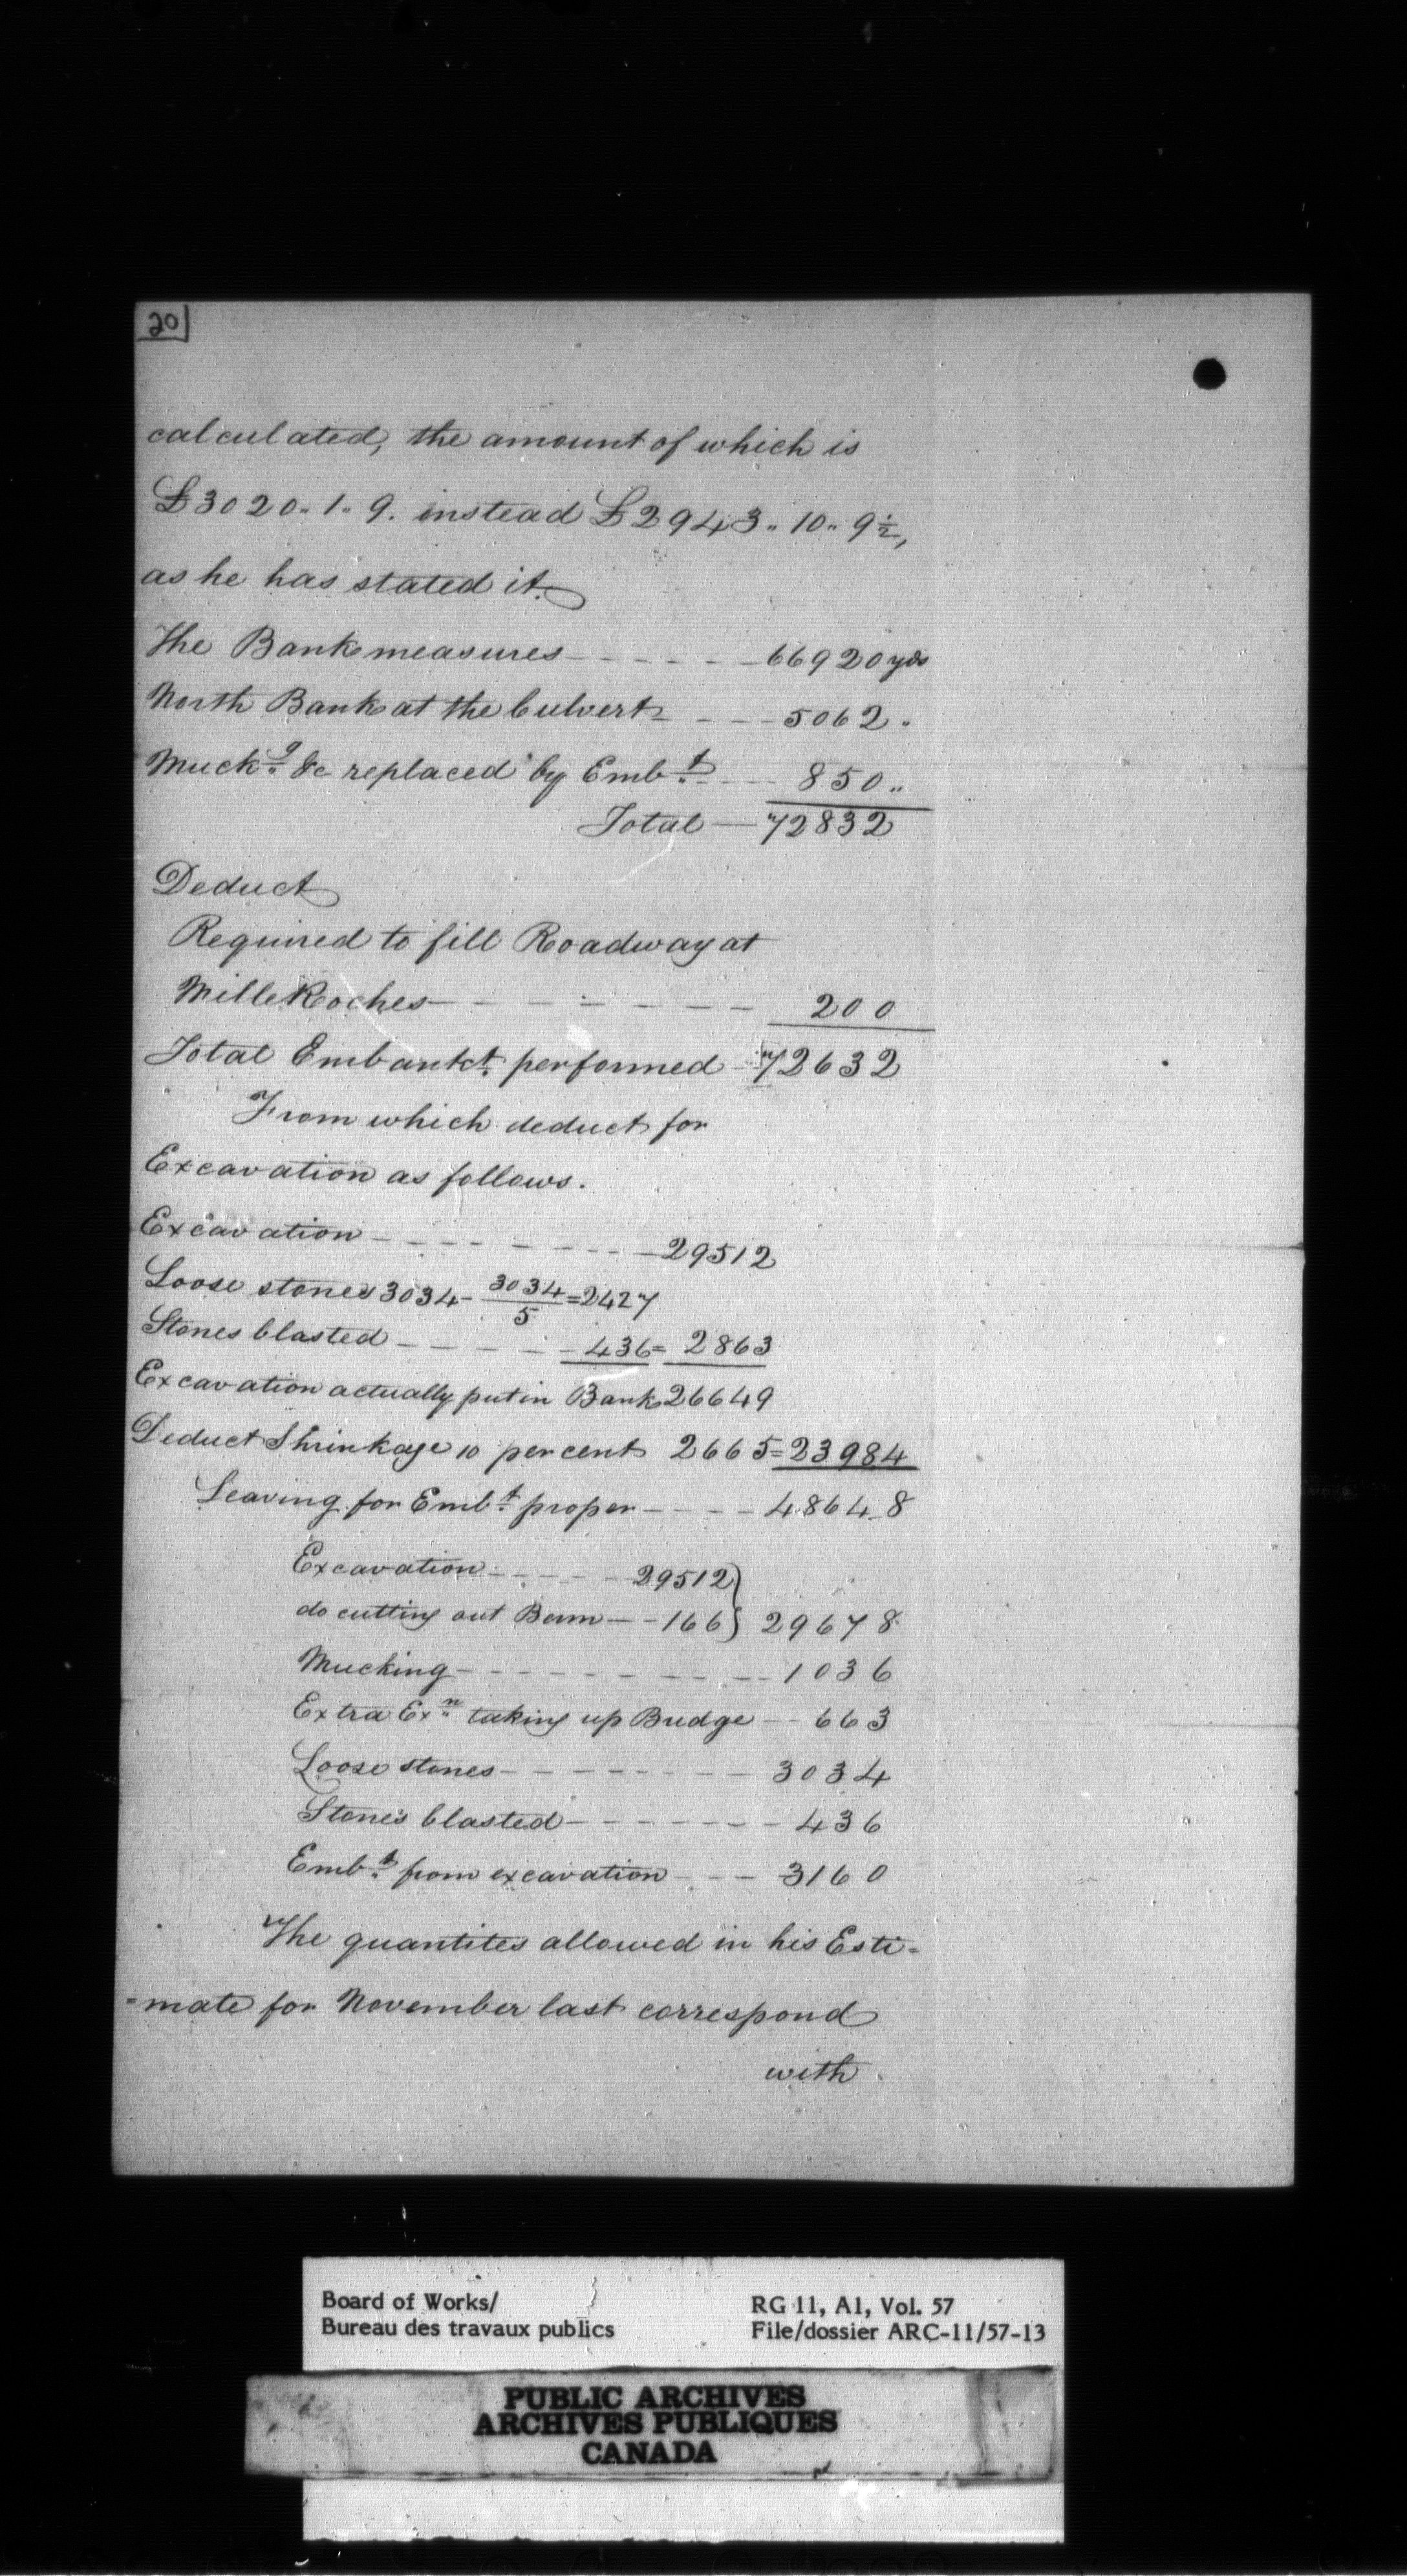 20
calculated, the amount of which is
£3020.. 1.. 9. instead £2943.. 10.. 9½,
as he has stated it.
The Bank measures - - - - - - 66920 yds
North Bank at the Culvert - - - 5062 "
Muckg. &c replaced by Embt. - - - 850 "
Total — 72832
Deduct
Required to fill Roadway at
Mille Roches - - - - - - - - 200
Total Embankt. performed - 72632
From which deduct for
Excavation as follows.
Excavation - - - - - - - - - 29512
Loose stones 3034 - 3034/5 = 2427
Stones blasted - - - - - 436 = 2863
Excavation actually put in Bank 26649
Deduct Shrinkage 10 per cent 2665 = 23984
Leaving for Embt. proper - - - - 48648
Excavation - - - - - 29512 }
do cutting out Berm - - 166 } 29678
Mucking - - - - - - - - - - 1036
Extra Exn. taking up Budge - - 663
Loose stones - - - - - - - - 3034
Stones blasted - - - - - - - - 436
Embt. from excavation - - - 3160
The quantites allowed in his Esti=
=mate for November last correspond
with
Board of Works/
Bureau des travaux publics
RG 11, A1, Vol. 57
File/dossier ARC-11/57-13
PUBLIC ARCHIVES
ARCHIVES PUBLIQUES
CANADA